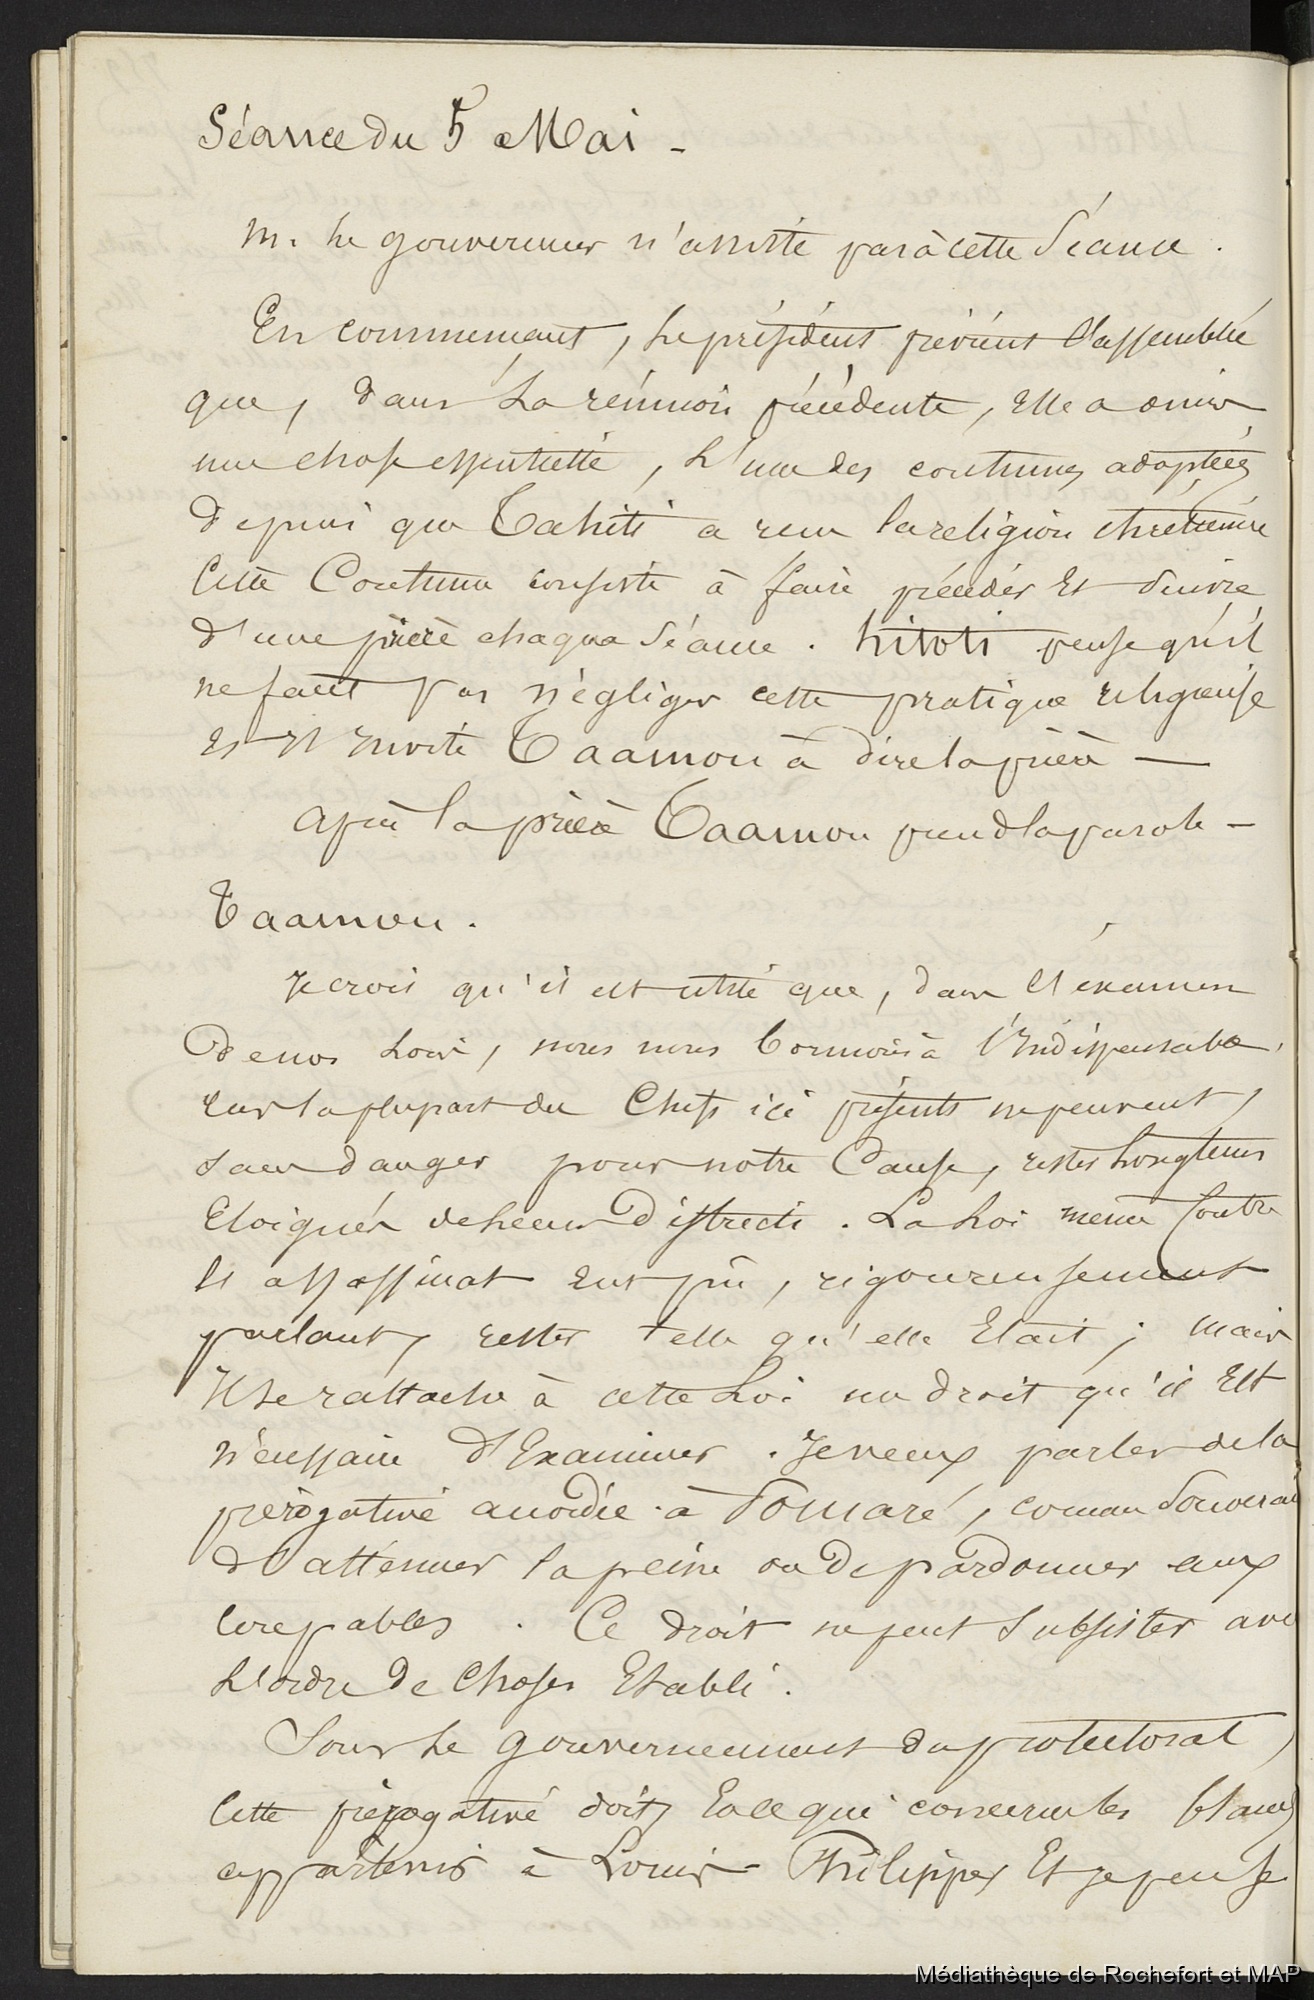 Séance du 5 Mai -
M. Le gouverneur n'assiste pas à cette Séance.
En commençant, Le président prévient l'assemblée
que, dans La réunion précédente, Elle a omis
une chose essentielle, L'une des coutumes adoptées
depuis que Tahiti a reçu la religion chrétienne
Cette Coutume consiste à faire précéder Et Suivre
d'une prière chaque Séance. hitoti pense qu'il
ne faut pas négliger cette pratique religieuse
Et Il Invite Taamou à dire la prière —
après la prière Taamou prend la parole -
Taamou.
Je crois qu'il est utile que, dans l'examen
De nos Lois, nous nous bornions à l'Indispensable,
car la plupart des Chefs ici présents ne peuvent,
sans danger pour notre Cause, rester Longtems
Eloignés de leurs Districts. La Loi même Contre
L'assassinat eut pû, rigoureusement
parlant, rester telle qu'elle Etait; mais
Il se rattache à cette Loi un droit qu'il Est
nécessaire d'Examiner. Je veux parler de la
prérogative accordée à Pomaré, comme Souverai
d'atténuer la peine ou De pardonner aux
coupables. Ce droit ne peut Subsister avec
L'ordre De Choses Etabli.
Sous Le gouvernement du protectorat,
Cette prérogative doit, En ce qui concerne les blancs
appartenir à Louis Philippe, Et je pense
Médiathèque de Rochefort et MAP